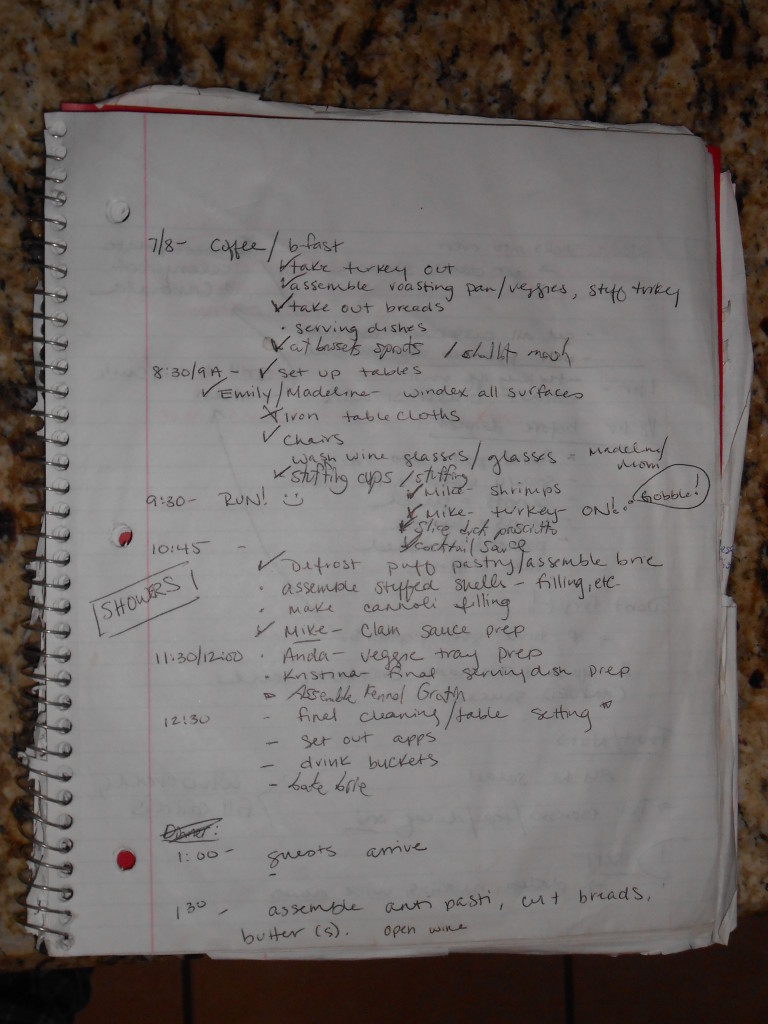 7/8- Coffee / bfast
✓take turkey out
✓assemble roasting pan/veggies, stuff turkey
✓take out breads
· serving dishes
✓cut brussels sprouts / shallot
8:30/9A - ✓ set up tables
✓Emily/Madeline- windex all surfaces
Iron table cloths
✓ chairs
wash wine glasses / glasses = Madeline/
mom
✓ stuffing cups / stuffing
9:30- RUN! ☺
✓Mike- shrimps
✓Mike- turkey- ON!
Gobble!
✓Slice duck prosciutto
✓cocktail sauce
10:45 -
✓ Defrost puff pastry/assemble brie
· assemble stuffed shells - filling, etc.
SHOWERS!
· make cannoli filling
✓ Mike- Clam sauce prep
11:30/12:00 · Anda- veggie tray prep
· Kristina- final serving dish prep
Assemble Fennel Gratin
12:30 - final cleaning/table setting
- set out apps
- drink buckets
- bake brie
Dinner:
1:00- guests arrive
1 30 - assemble antipasti, cut breads,
butter(s). open wine